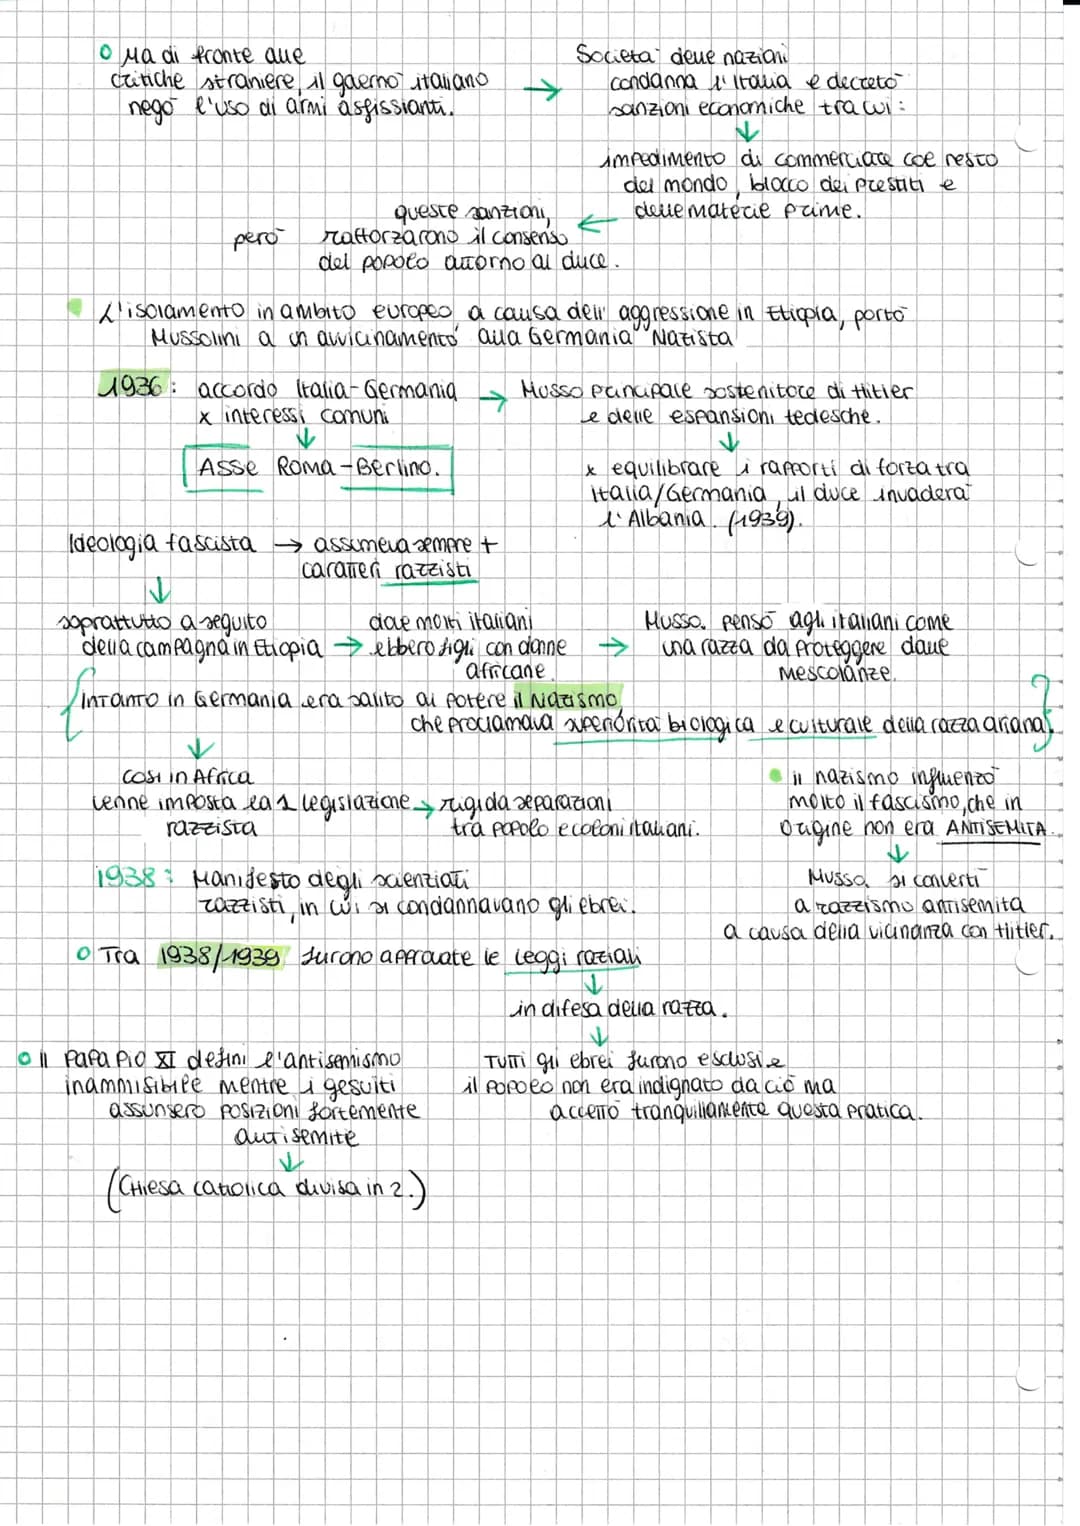 Ma di fronte alle
critiche straniere, il governo italiano
negò l'uso di armi asfissianti.
→
Società delle nazioni
condanna l'Italia e decretò
sanzioni economiche tra cui:
↓
impedimento di commerciare col resto
del mondo, blocco dei prestiti e
delle materie prime.
←
queste sanzioni,
però rafforzarono il consenso
del popolo attorno al duce.
L'isolamento in ambito europeo, a causa dell' aggressione in Etiopia, portò
Mussolini a un avvicinamento alla Germania Nazista
1936: accordo Italia-Germania
x interessi comuni
↓
Asse Roma-Berlino.
→ Musso principale sostenitore di Hitler
e delle espansioni tedesche.
↓
x equilibrare i rapporti di forza tra
Italia/Germania, il duce invaderà
l'Albania. (1939).
Ideologia fascista → assumeva sempre +
caratteri razzisti
↓
soprattutto a seguito
della campagna in Etiopia →
dove molti italiani
ebbero figli con donne
africane.
→
Musso. pensò agli italiani come
una razza da proteggere dalle
mescolanze.
{Intanto in Germania era salito al potere il Nazismo,
che proclamava superiorità biologica e culturale della razza ariana}.
↓
così in Africa
venne imposta la 1 legislazione
razzista
→ rigida separazioni
tra popolo e coloni italiani.
il nazismo influenzò
molto il fascismo, che in
origine non era ANTISEMITA.
↓
Musso. si convertì
a razzismo antisemita
a causa della vicinanza con Hitler.
1938: Manifesto degli scienziati
razzisti, in cui si condannavano gli ebrei.
Tra 1938/1939 furono approvate le leggi razziali
↓
in difesa della razza.
↓
Tutti gli ebrei furono esclusi e
il popolo non era indignato da ciò ma
accettò tranquillamente questa pratica.
Il Papa Pio XI definì l'antisemismo
inammisibile mentre i gesuiti
assunsero posizioni fortemente
antisemite
↓
(Chiesa cattolica divisa in 2.)